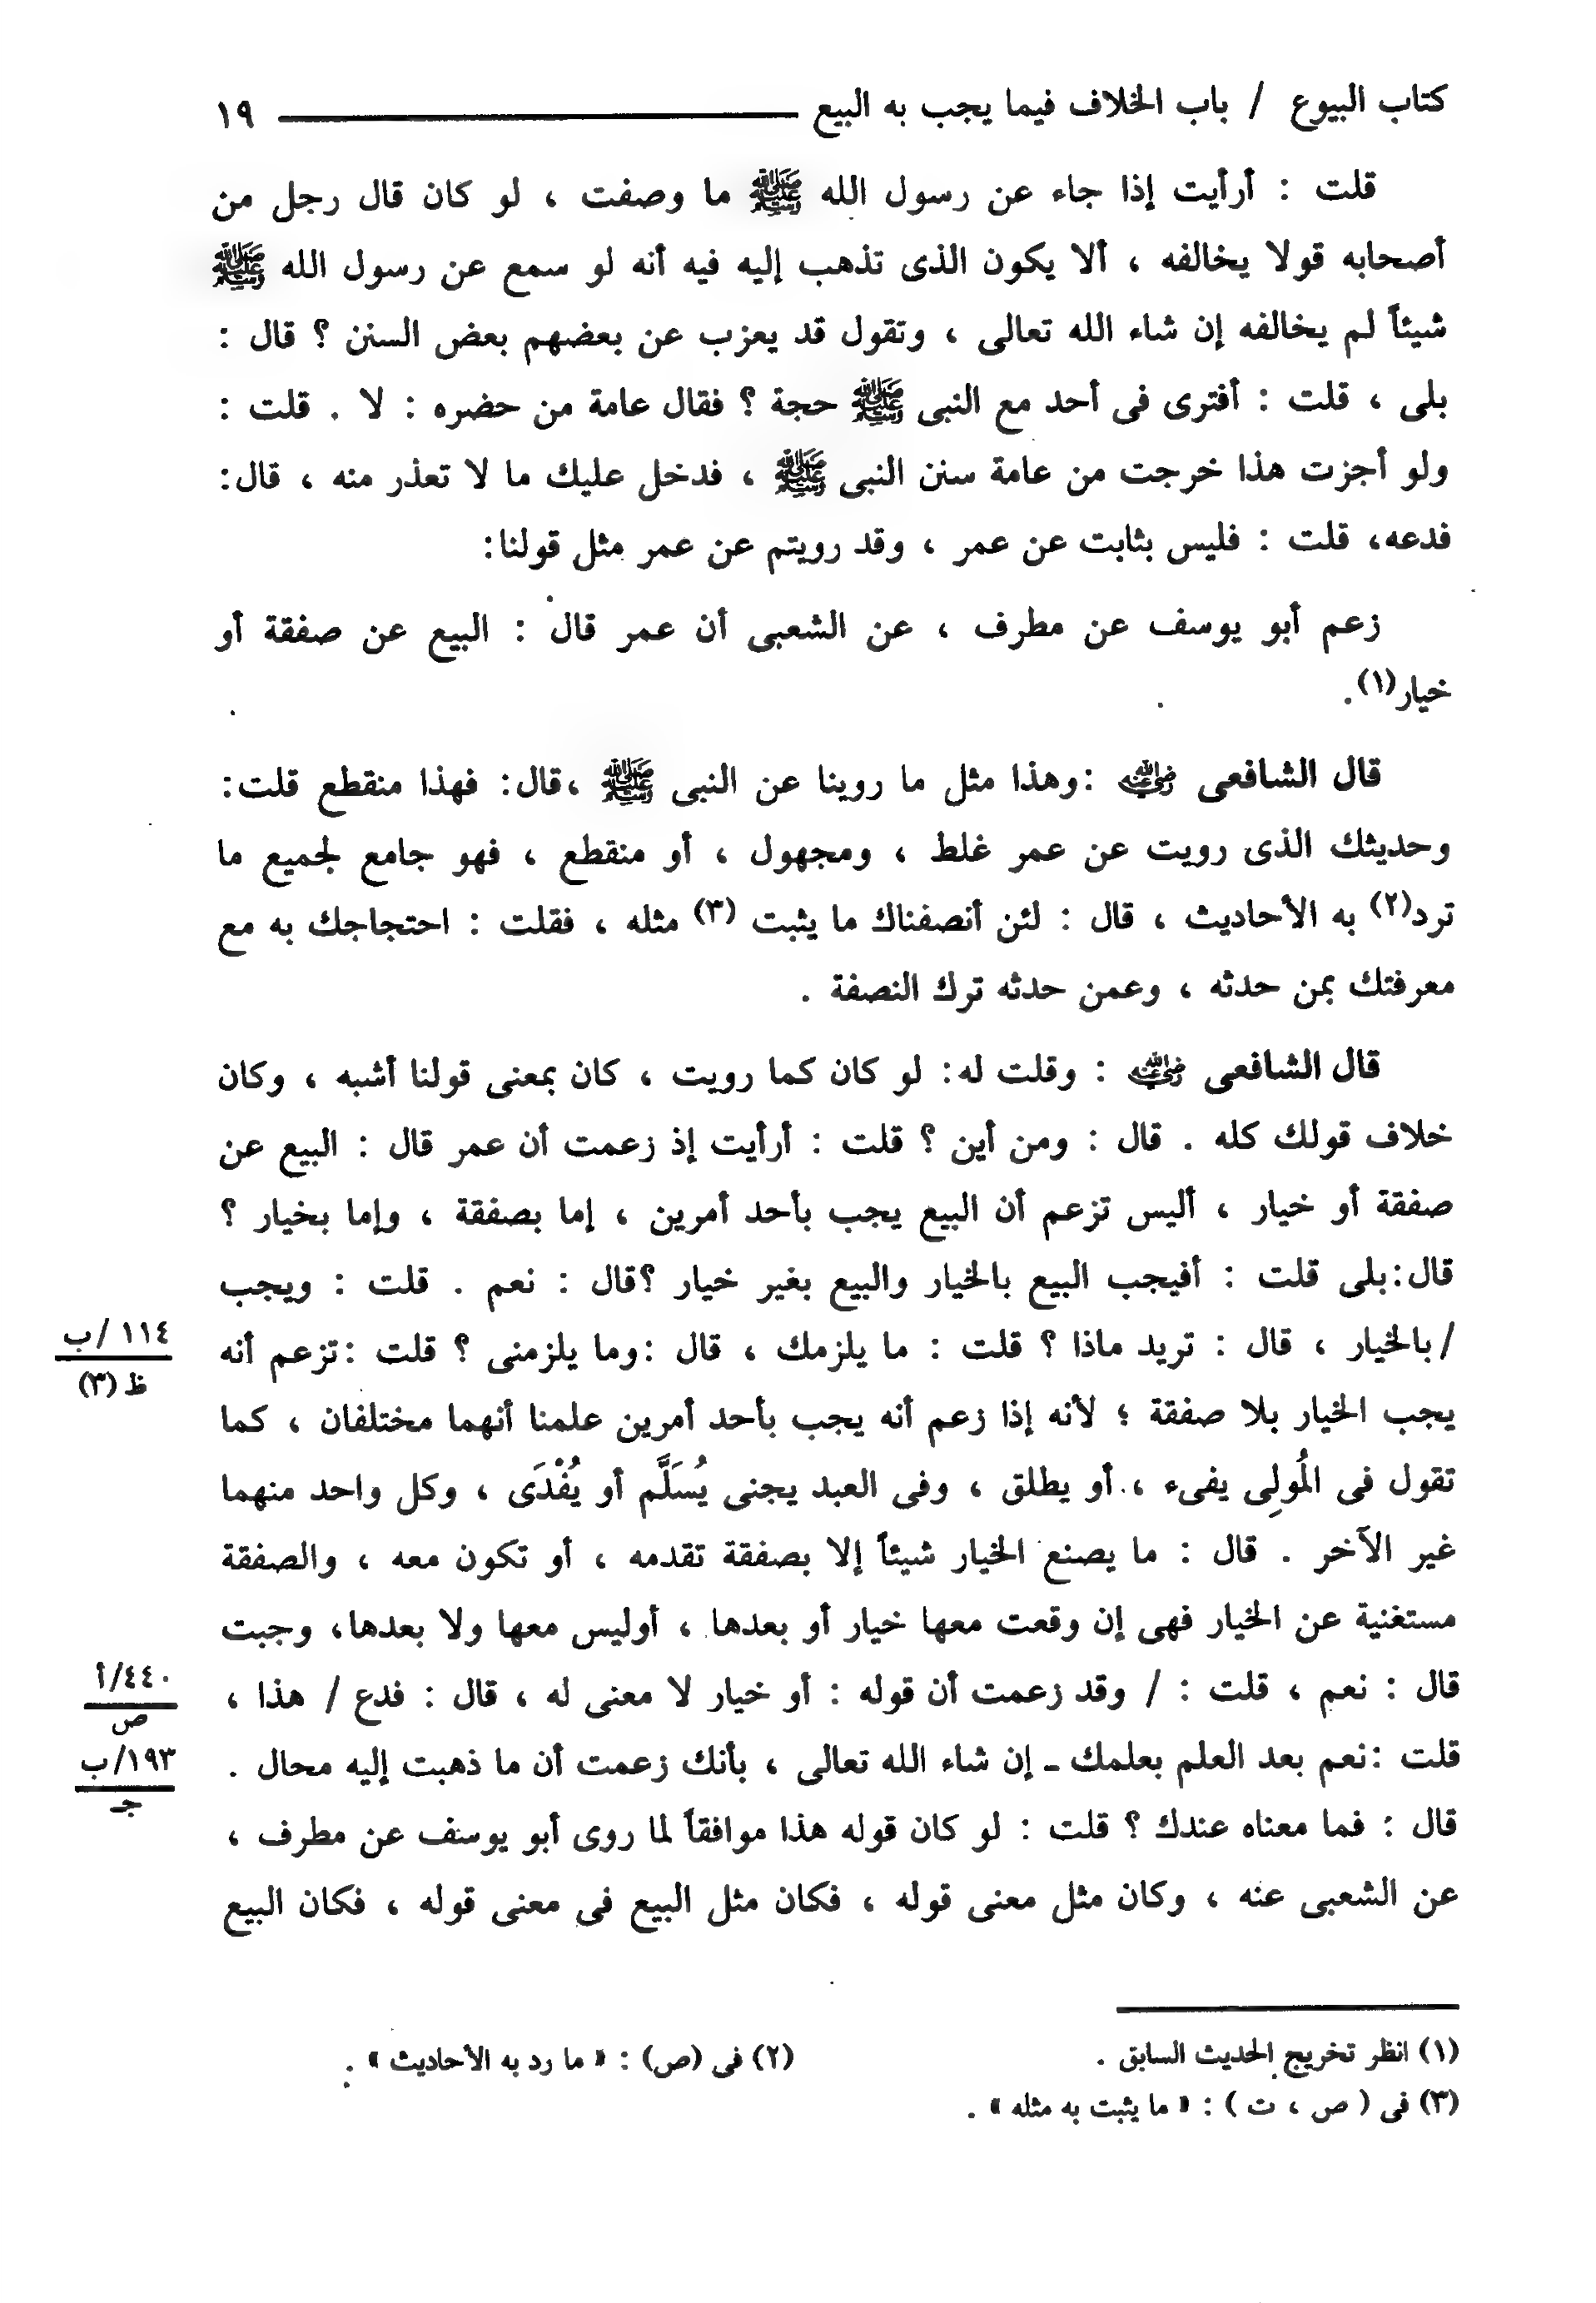 كتاب البيوع / باب الخلاف فيما يجب به البيع ١٩
قلت : أرأيت إذا جاء عن رسول الله ﷺ ما وصفت ، لو كان قال رجل من
أصحابه قولا يخالفه ، ألا يكون الذى تذهب إليه فيه أنه لو سمع عن رسول الله ﷺ
شيئاً لم يخالفه إن شاء الله تعالى ، وتقول قد يعزب عن بعضهم بعض السنن ؟ قال :
بلى ، قلت : أفترى فى أحد مع النبى ﷺ حجة ؟ فقال عامة من حضره : لا . قلت :
ولو أجزت هذا خرجت من عامة سنن النبى ﷺ ، فدخل عليك ما لا تعذر منه ، قال:
فدعه، قلت : فليس بثابت عن عمر ، وقد رويتم عن عمر مثل قولنا:
زعم أبو يوسف عن مطرف ، عن الشعبى أن عمر قال : البيع عن صفقة أو
خيار(١).
قال الشافعى رضي الله عنه :وهذا مثل ما روينا عن النبى ﷺ ،قال: فهذا منقطع قلت:
وحديثك الذى رويت عن عمر غلط ، ومجهول ، أو منقطع ، فهو جامع لجميع ما
ترد(٢) به الأحاديث ، قال : لئن أنصفناك ما يثبت (٣) مثله ، فقلت : احتجاجك به مع
معرفتك بمن حدثه ، وعمن حدثه ترك النصفة .
قال الشافعى رضي الله عنه : وقلت له: لو كان كما رويت ، كان بمعنى قولنا أشبه ، وكان
خلاف قولك كله . قال : ومن أين ؟ قلت : أرأيت إذ زعمت أن عمر قال : البيع عن
صفقة أو خيار ، أليس تزعم أن البيع يجب بأحد أمرين ، إما بصفقة ، وإما بخيار ؟
قال:بلى قلت : أفيجب البيع بالخيار والبيع بغير خيار ؟قال : نعم . قلت : ويجب
/بالخيار ، قال : تريد ماذا ؟ قلت : ما يلزمك ، قال :وما يلزمنى ؟ قلت :تزعم أنه
١١٤ /ب
ظ (٣)
يجب الخيار بلا صفقة ؛ لأنه إذا زعم أنه يجب بأحد أمرين علمنا أنهما مختلفان ، كما
تقول فى المُولِى يفىء ، أو يطلق ، وفى العبد يجنى يُسَلَّم أو يُفْدَى ، وكل واحد منهما
غير الآخر . قال : ما يصنع الخيار شيئاً إلا بصفقة تقدمه ، أو تكون معه ، والصفقة
مستغنية عن الخيار فهى إن وقعت معها خيار أو بعدها ، أوليس معها ولا بعدها، وجبت
قال : نعم ، قلت : / وقد زعمت أن قوله : أو خيار لا معنى له ، قال : فدع / هذا ،
٤٤٠/أ
ص
قلت :نعم بعد العلم بعلمك ـ إن شاء الله تعالى ، بأنك زعمت أن ما ذهبت إليه محال .
١٩٣/ب
جـ
قال : فما معناه عندك ؟ قلت : لو كان قوله هذا موافقاً لما روى أبو يوسف عن مطرف ،
عن الشعبى عنه ، وكان مثل معنى قوله ، فكان مثل البيع فى معنى قوله ، فكان البيع
(١) انظر تخريج الحديث السابق . (٢) فى (ص) : « ما رد به الأحاديث » .
(٣) فى ( ص ، ت ) : « ما يثبت به مثله » .